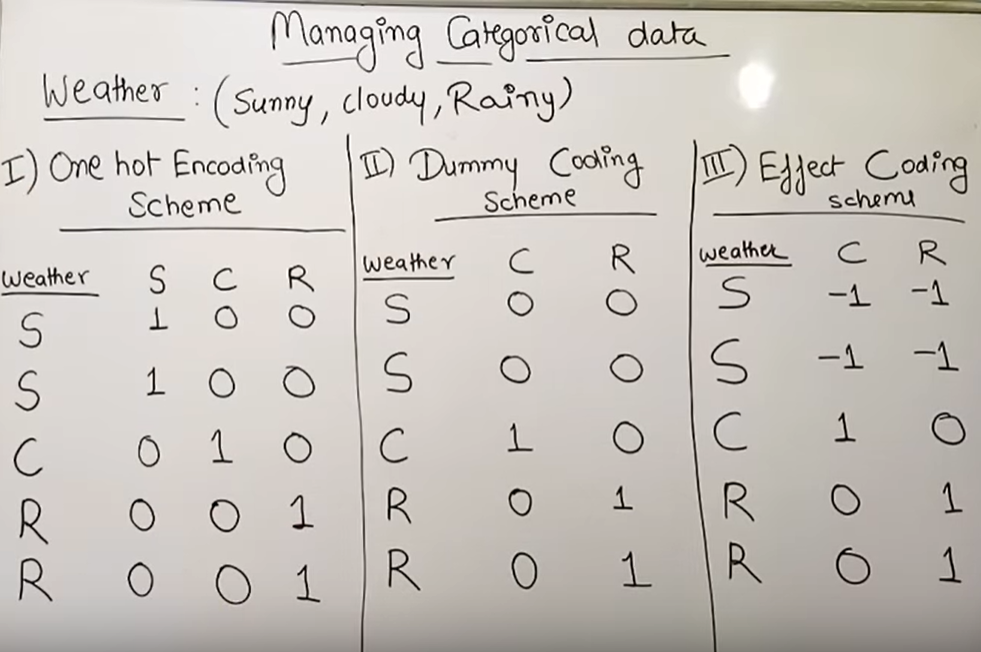 Managing Categorical data
Weather : (Sunny, cloudy, Rainy)
I) One hot Encoding
Scheme
Weather S C R
S 1 0 0
S 1 0 0
C 0 1 0
R 0 0 1
R 0 0 1
II) Dummy Coding
Scheme
Weather C R
S 0 0
S 0 0
C 1 0
R 0 1
R 0 1
III) Effect Coding
scheme
weather C R
S -1 -1
S -1 -1
C 1 0
R 0 1
R 0 1